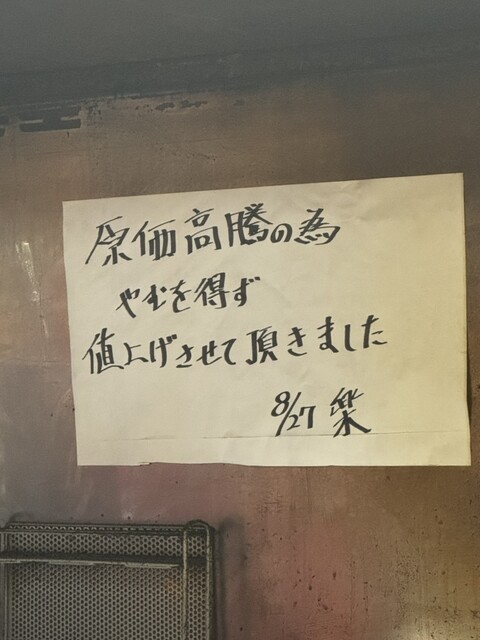 原価高騰の為
やむを得ず
値上げさせて頂きました
8/27 楽